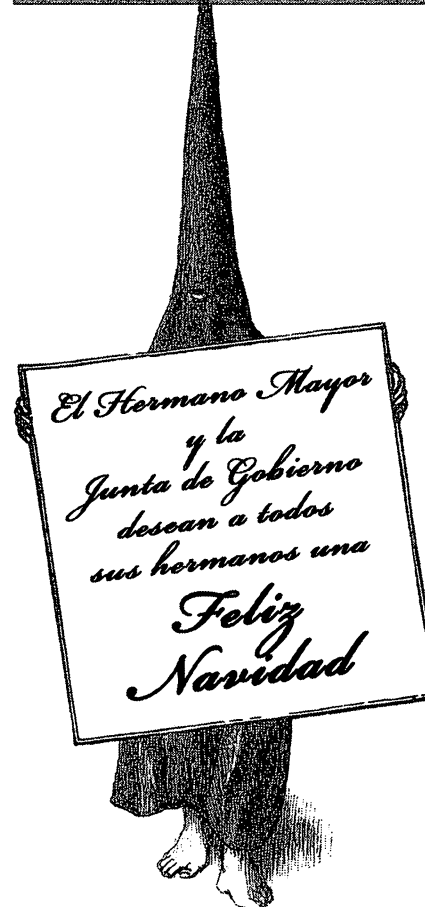 El Hermano Mayor
y la
Junta de Gobierno
desean a todos
sus hermanos una
Feliz
Navidad